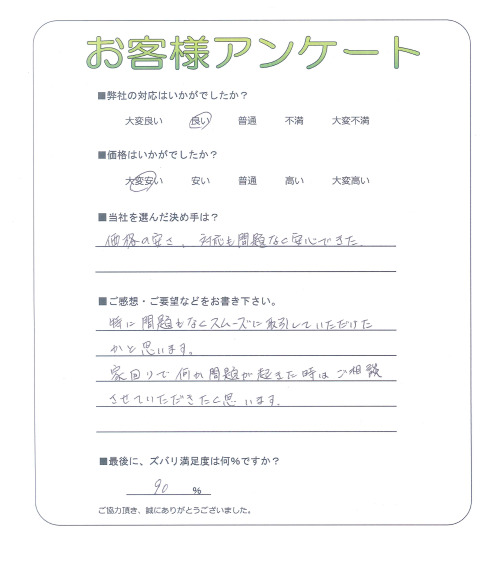 お客様アンケート
■弊社の対応はいかがでしたか？
大変良い 良い 普通 不満 大変不満
■価格はいかがでしたか？
大変安い 安い 普通 高い 大変高い
■当社を選んだ決め手は？
価格の安さ、対応も問題なく安心できた。
■ご感想・ご要望などをお書き下さい。
特に問題もなくスムーズに取引していただけた
かと思います。
家回りで何か問題が起きた時はご相談
させていただきたく思います。
■最後に、ズバリ満足度は何％ですか？
90 ％
ご協力頂き、誠にありがとうございました。